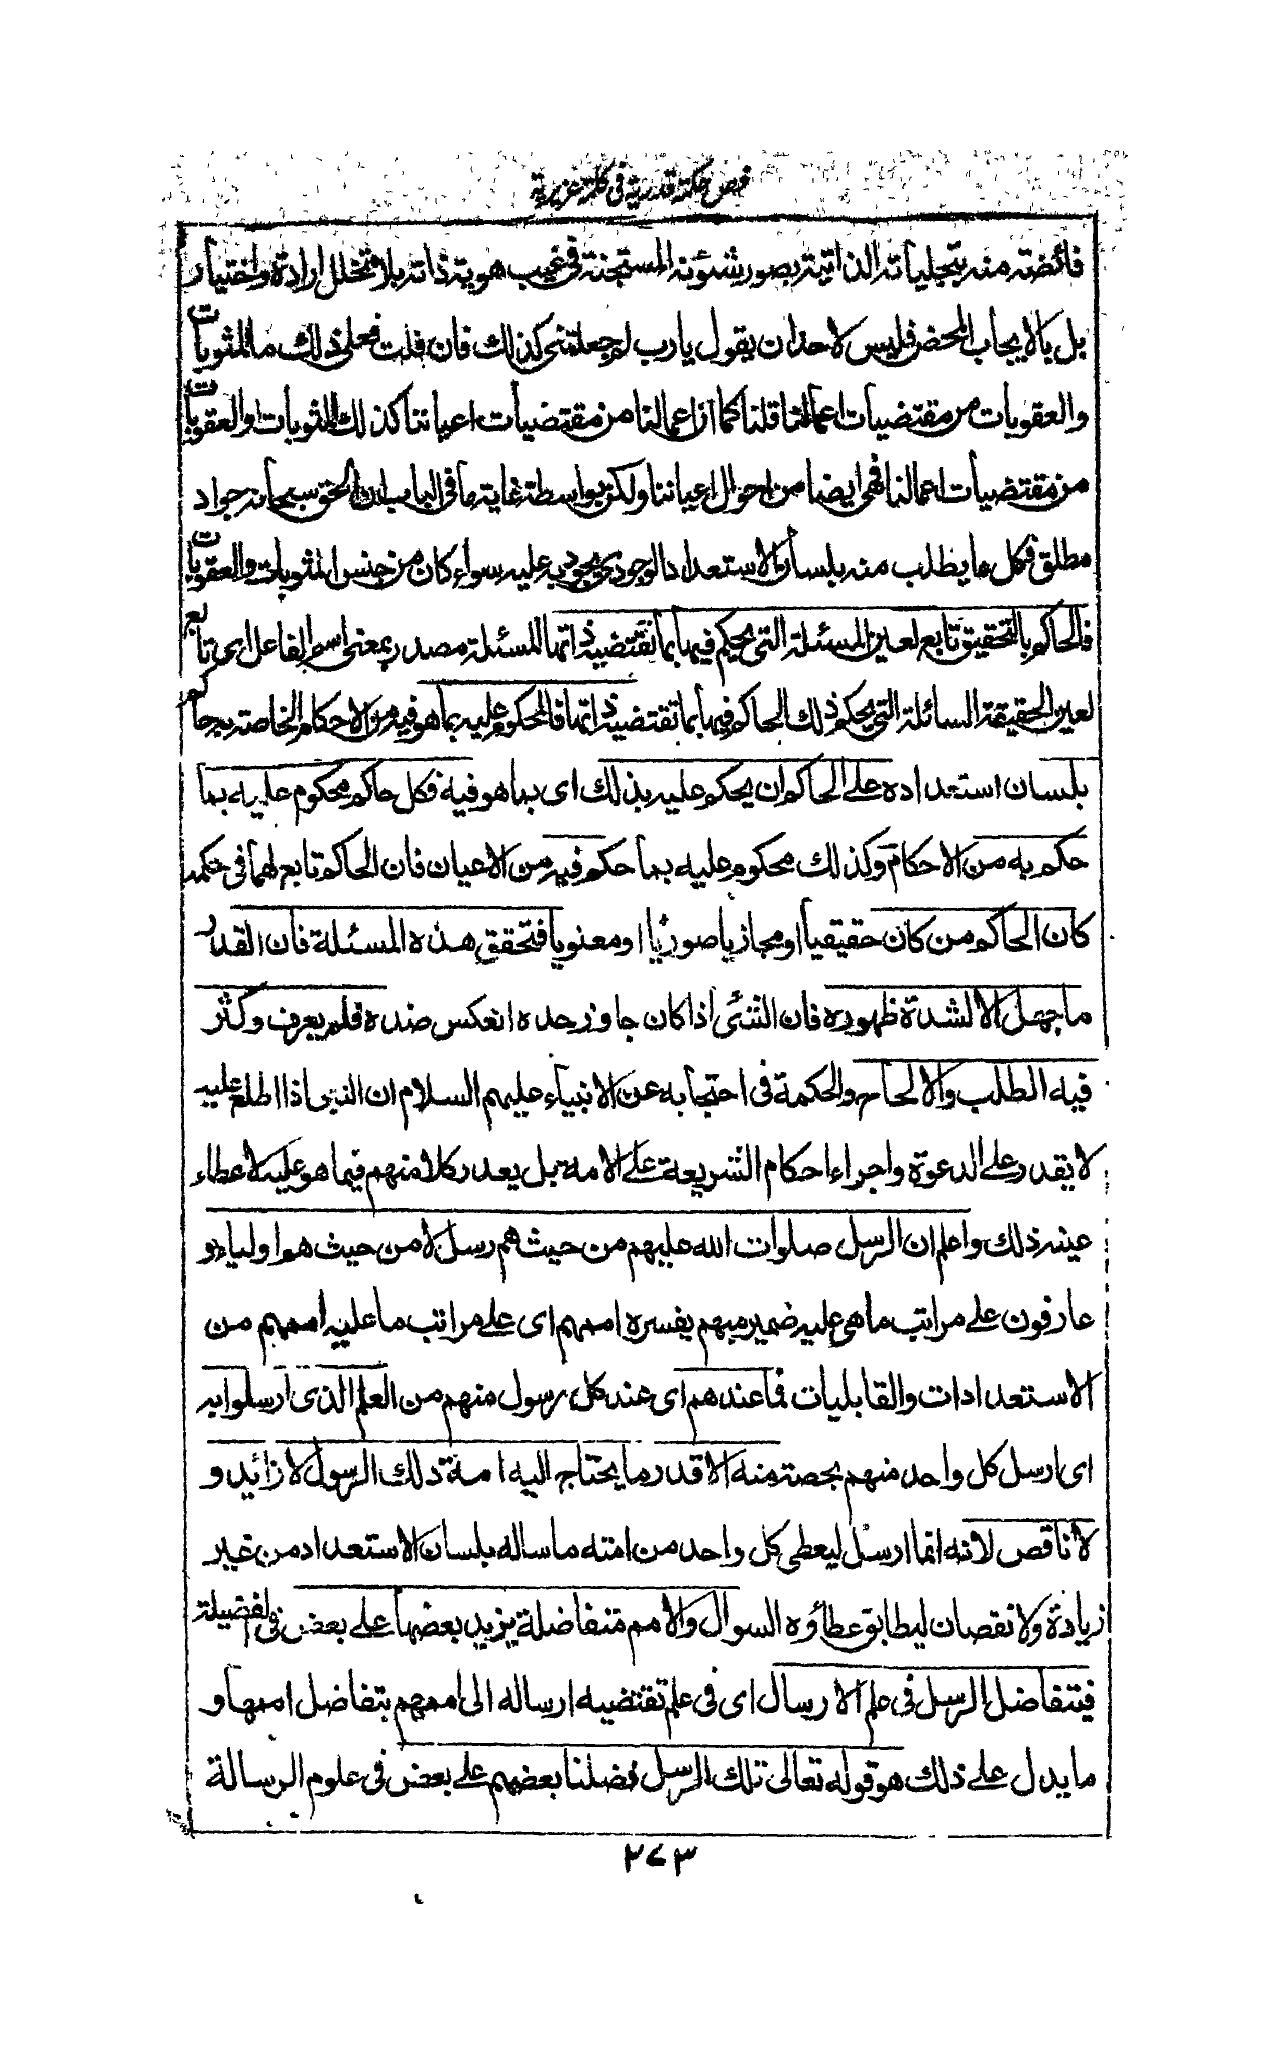 فص حكمة قدرية فى كلمة عزيرية
فائضة منه بتجلياته الذاتية بصور شئونه المستجنة فى غيب هوية ذاته بلا تخلل ارادة واختيار
بل بالايجاب المحض فليس لاحد ان يقول يارب لم جعلتنى كذلك فان قلت فعلى ذلك ما المثوبات
والعقوبات من مقتضيات اعمالنا قلنا كما ان اعمالنا من مقتضيات اعياننا كذلك المثوبات والعقوبات
من مقتضيات اعمالنا فهى ايضا من احوال اعياننا ولكن بواسطة غاية ما فى الباب ان الحق سبحانه جواد
مطلق فكل ما يطلب منه بلسان الاستعداد الوجودى يجود به عليه سواء كان من جنس المثوبات والعقوبات
فالحاكم بالتحقيق تابع لعين المسئلة التى يحكم فيها بما تقتضيه ذاتها المسئلة مصدر بمعنى اسم الفاعل اى تابع
لعين الحقيقة السائلة التى يحكم ذلك الحاكم فيها بما تقتضيه ذاتها فالمحكوم عليه بما هو فيه من الاحكام الخاصة به حاكم
بلسان استعداده على الحاكم ان يحكم عليه بذلك اى بما هو فيه فكل حاكم محكوم عليه بما
حكم به من الاحكام وكذلك محكوم عليه بما حكم فيه من الاعيان فان الحاكم تابع لهما فى حكمه
كان الحاكم من كان حقيقيا او مجازيا صوريا او معنويا فتحقق هذه المسئلة فان القدر
ما جهل الا لشدة ظهوره فان الشئ اذا كان جاوز حده انعكس ضده فلم يعرف وكثر
فيه الطلب والالحاح والحكمة فى احتجابه عن الانبياء عليهم السلام ان النبى اذا اطلع عليه
لا يقدر على الدعوة واجراء احكام الشريعة على الامة بل يعذر كلا منهم فيما هو عليه لاعطاء
عينه ذلك واعلم ان الرسل صلوات الله عليهم من حيث هم رسل لا من حيث هم اولياء و
عارفون على مراتب ما هى عليه ضمير مبهم يفسره اممهم اى على مراتب ما عليه اممهم من
الاستعدادات والقابليات فما عندهم اى عند كل رسول منهم من العلم الذى ارسلوا به
اى ارسل كل واحد منهم بحصة منه الا قدر ما يحتاج اليه امة ذلك الرسول لا زائد و
لا ناقص لانه انما ارسل ليعطى كل واحد من امته ما ساله بلسان الاستعداد من غير
زيادة ولا نقصان ليطابق عطاؤه السوال والامم متفاضلة يزيد بعضها على بعض فى الفضيلة
فيتفاضل الرسل فى علم الارسال اى فى علم تقتضيه ارساله الى اممهم بتفاضل اممها و
ما يدل على ذلك هو قوله تعالى تلك الرسل فضلنا بعضهم على بعض فى علوم الرسالة
٢٧٣